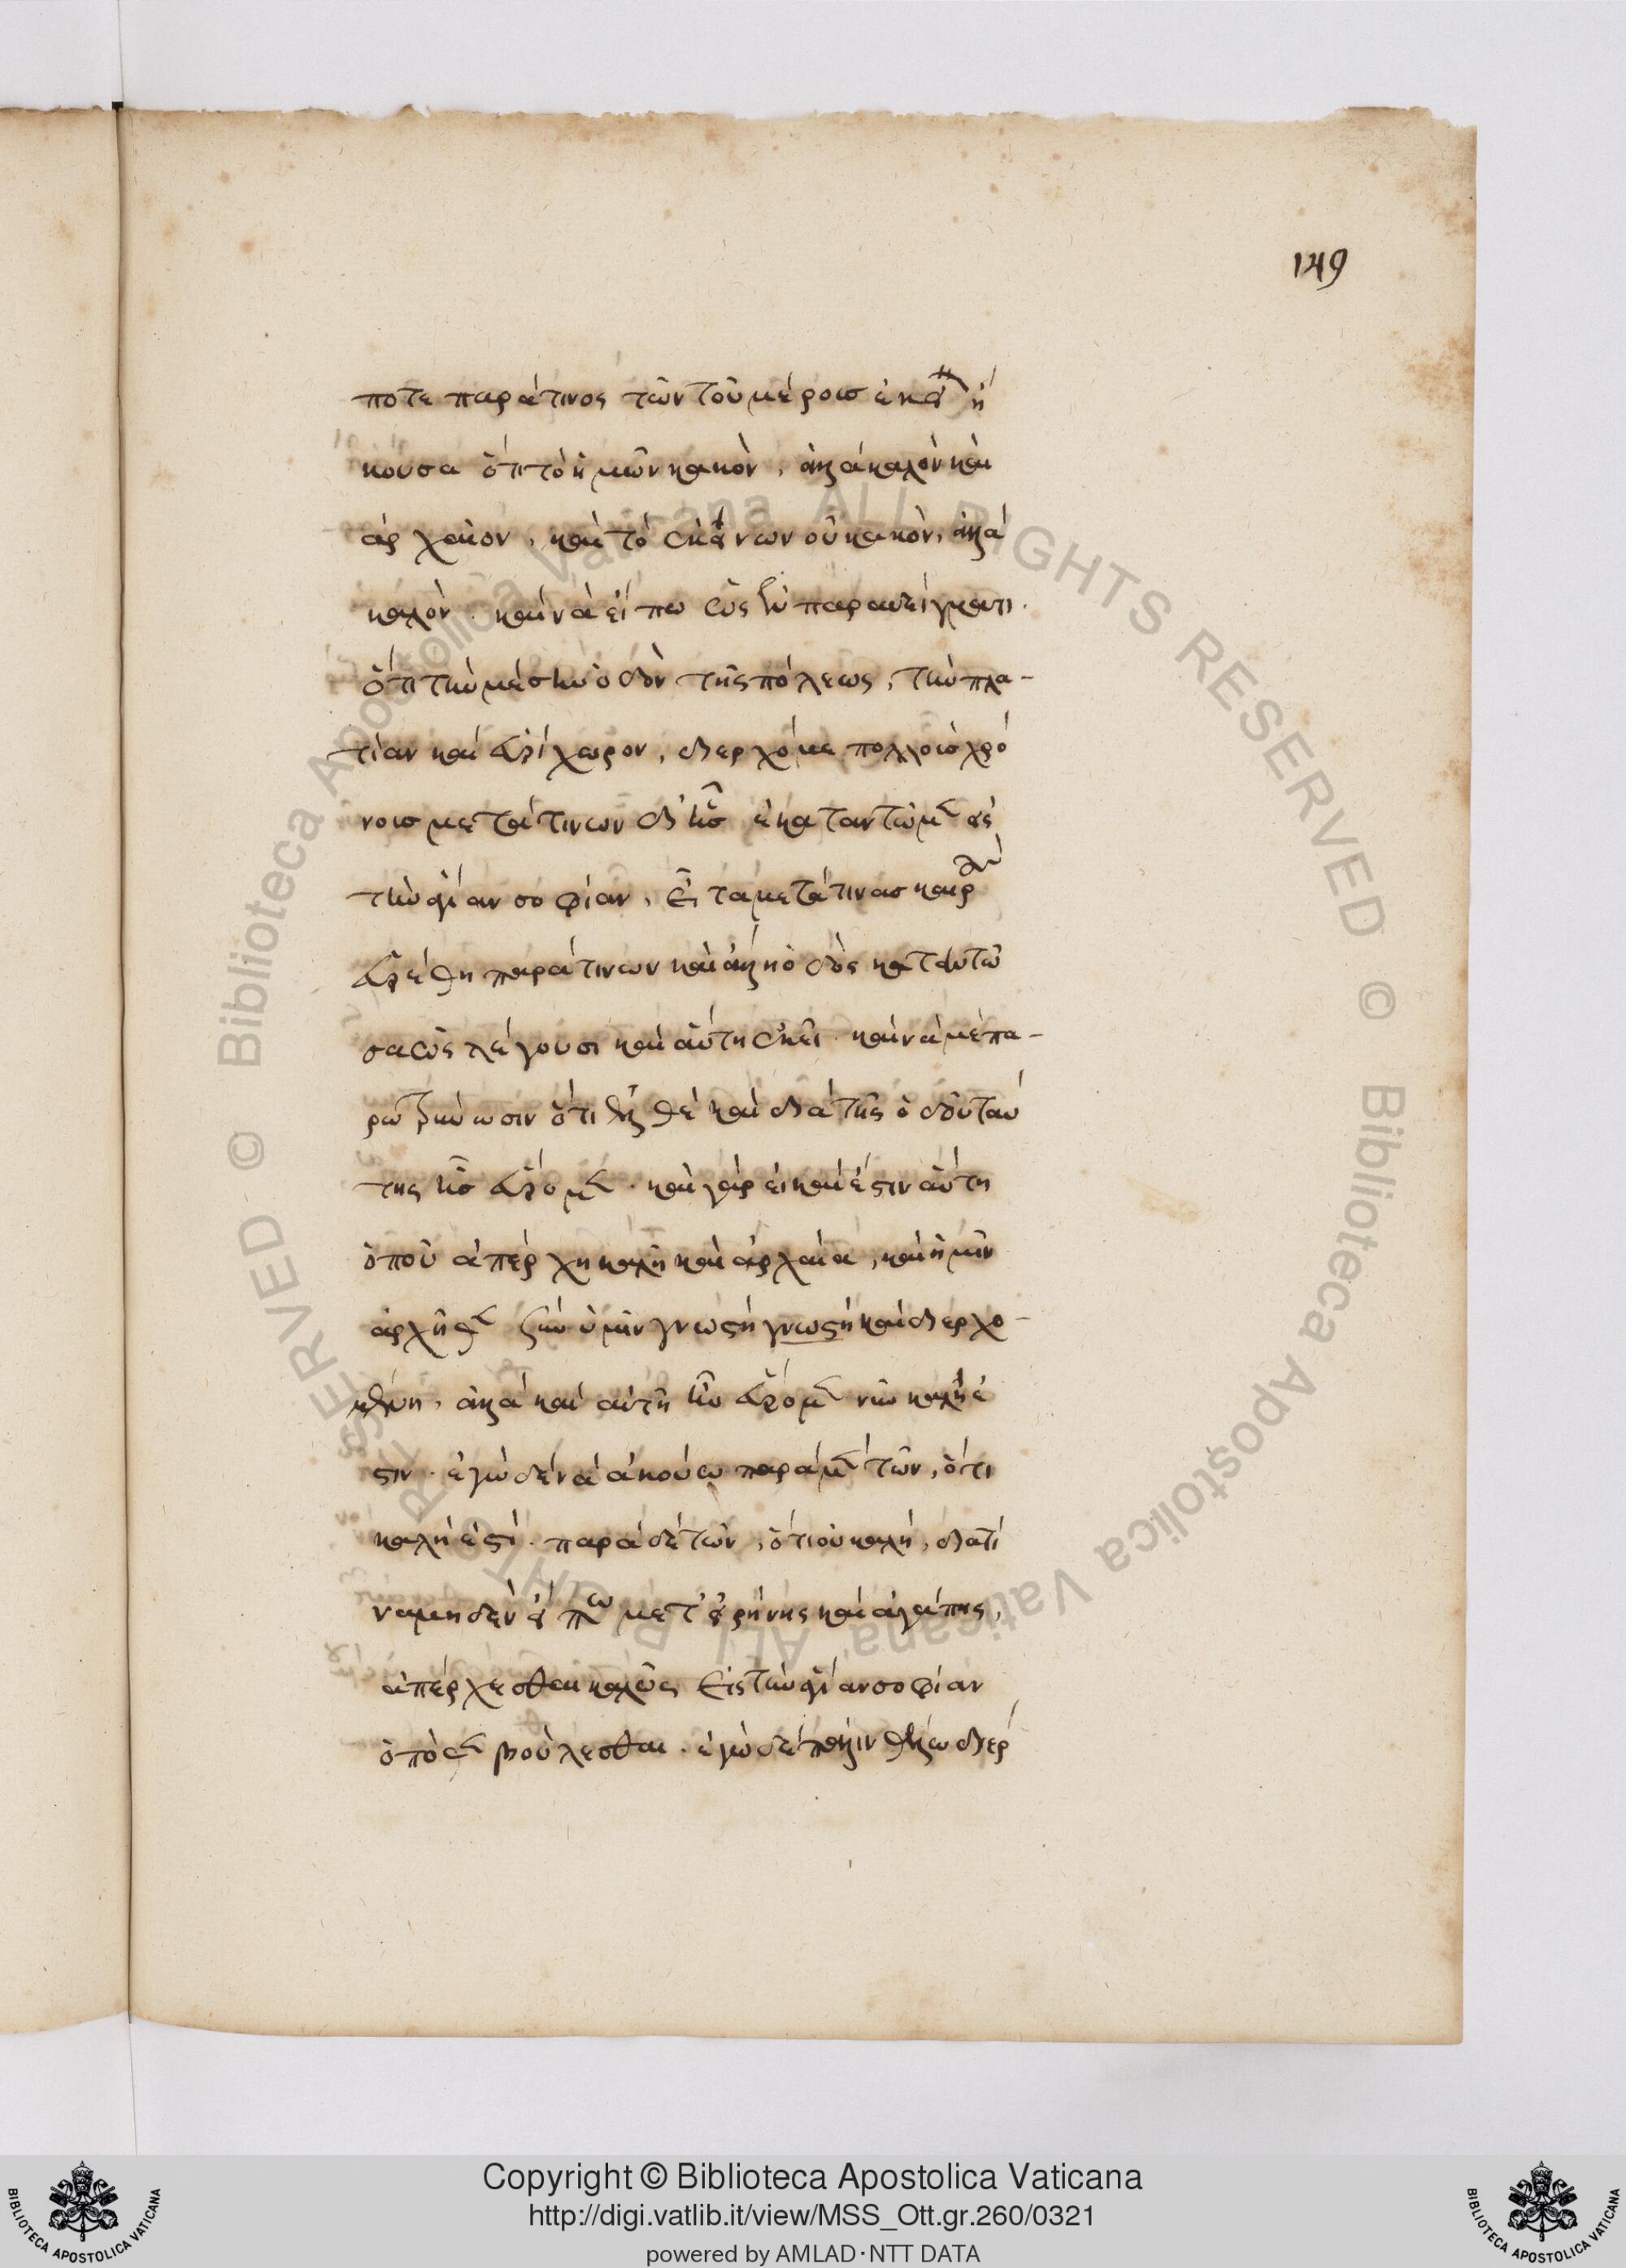 149
ποτε παρά τινος τῶν τοῦ μέρους ἐκεί ἤ
κουσα ὅτι τὸ ἡμῶν κακὸν, ἀλλὰ καλὸν καὶ
ἀρχαῖον, καὶ τὸ ἐκείνων οὐ κακὸν, ἀλλὰ
καλόν. καὶ νὰ εἴπω ὡς ἐν παραδείγματι.
ὅτι τὴν μέσην ὁδὸν τῆς πόλεως, τὴν πλα-
τίαν καὶ εὐρίχωρον, διερχόμε πολλοῖς χρό
νοις μετά τινων
τὴν ἁγίαν σοφίαν, εἶτα μετά τινας καιρ
εὑρέθη παρά τινων καὶ ἄλλη ὁδὸς κατ αυτῶ
σα ὡς λέγουσι καὶ αὕτη ἐκεῖ. καὶ νά με πα-
ὅτι καὶ διὰ τῆς ὁδοῦ ταύ
της καὶ γὰρ εἰ καὶ ἔστιν αὕτη
ὁποῦ ἀπέρχη καλὴ καὶ ἀρχαία, καὶ ἡμῖν
ὑμῖν γνωστὴ γνωστὴ καὶ διερχο-
μένη, ἀλλὰ καὶ αὐτὴ καλὴ ἐ
στιν. ἐγὼ δὲ νὰ ἀκούω παρὰ μὲν τῶν, ὅτι
καλὴ ἐστί. παρὰ δὲ τῶν, ὅτι οὐ καλή, διατί
να μηδὲν εἴπω μετ εἰρήνης καὶ ἀγάπης,
ἀπέρχεσθαι καλῶς εἰς τὴν ἁγίαν σοφίαν
βούλεσθαι. ἐγὼ δὲ πάλιν θέλω διερ
Copyright © Biblioteca Apostolica Vaticana
http://digi.vatlib.it/view/MSS_Ott.gr.260/0321
powered by AMLAD·NTT DATA
BIBLIOTECA APOSTOLICA VATICANA
BIBLIOTECA APOSTOLICA VATICANA
© Biblioteca Apostolica Vaticana ALL RIGHTS RESERVED
© Biblioteca Apostolica Vaticana ALL RIGHTS RESERVED